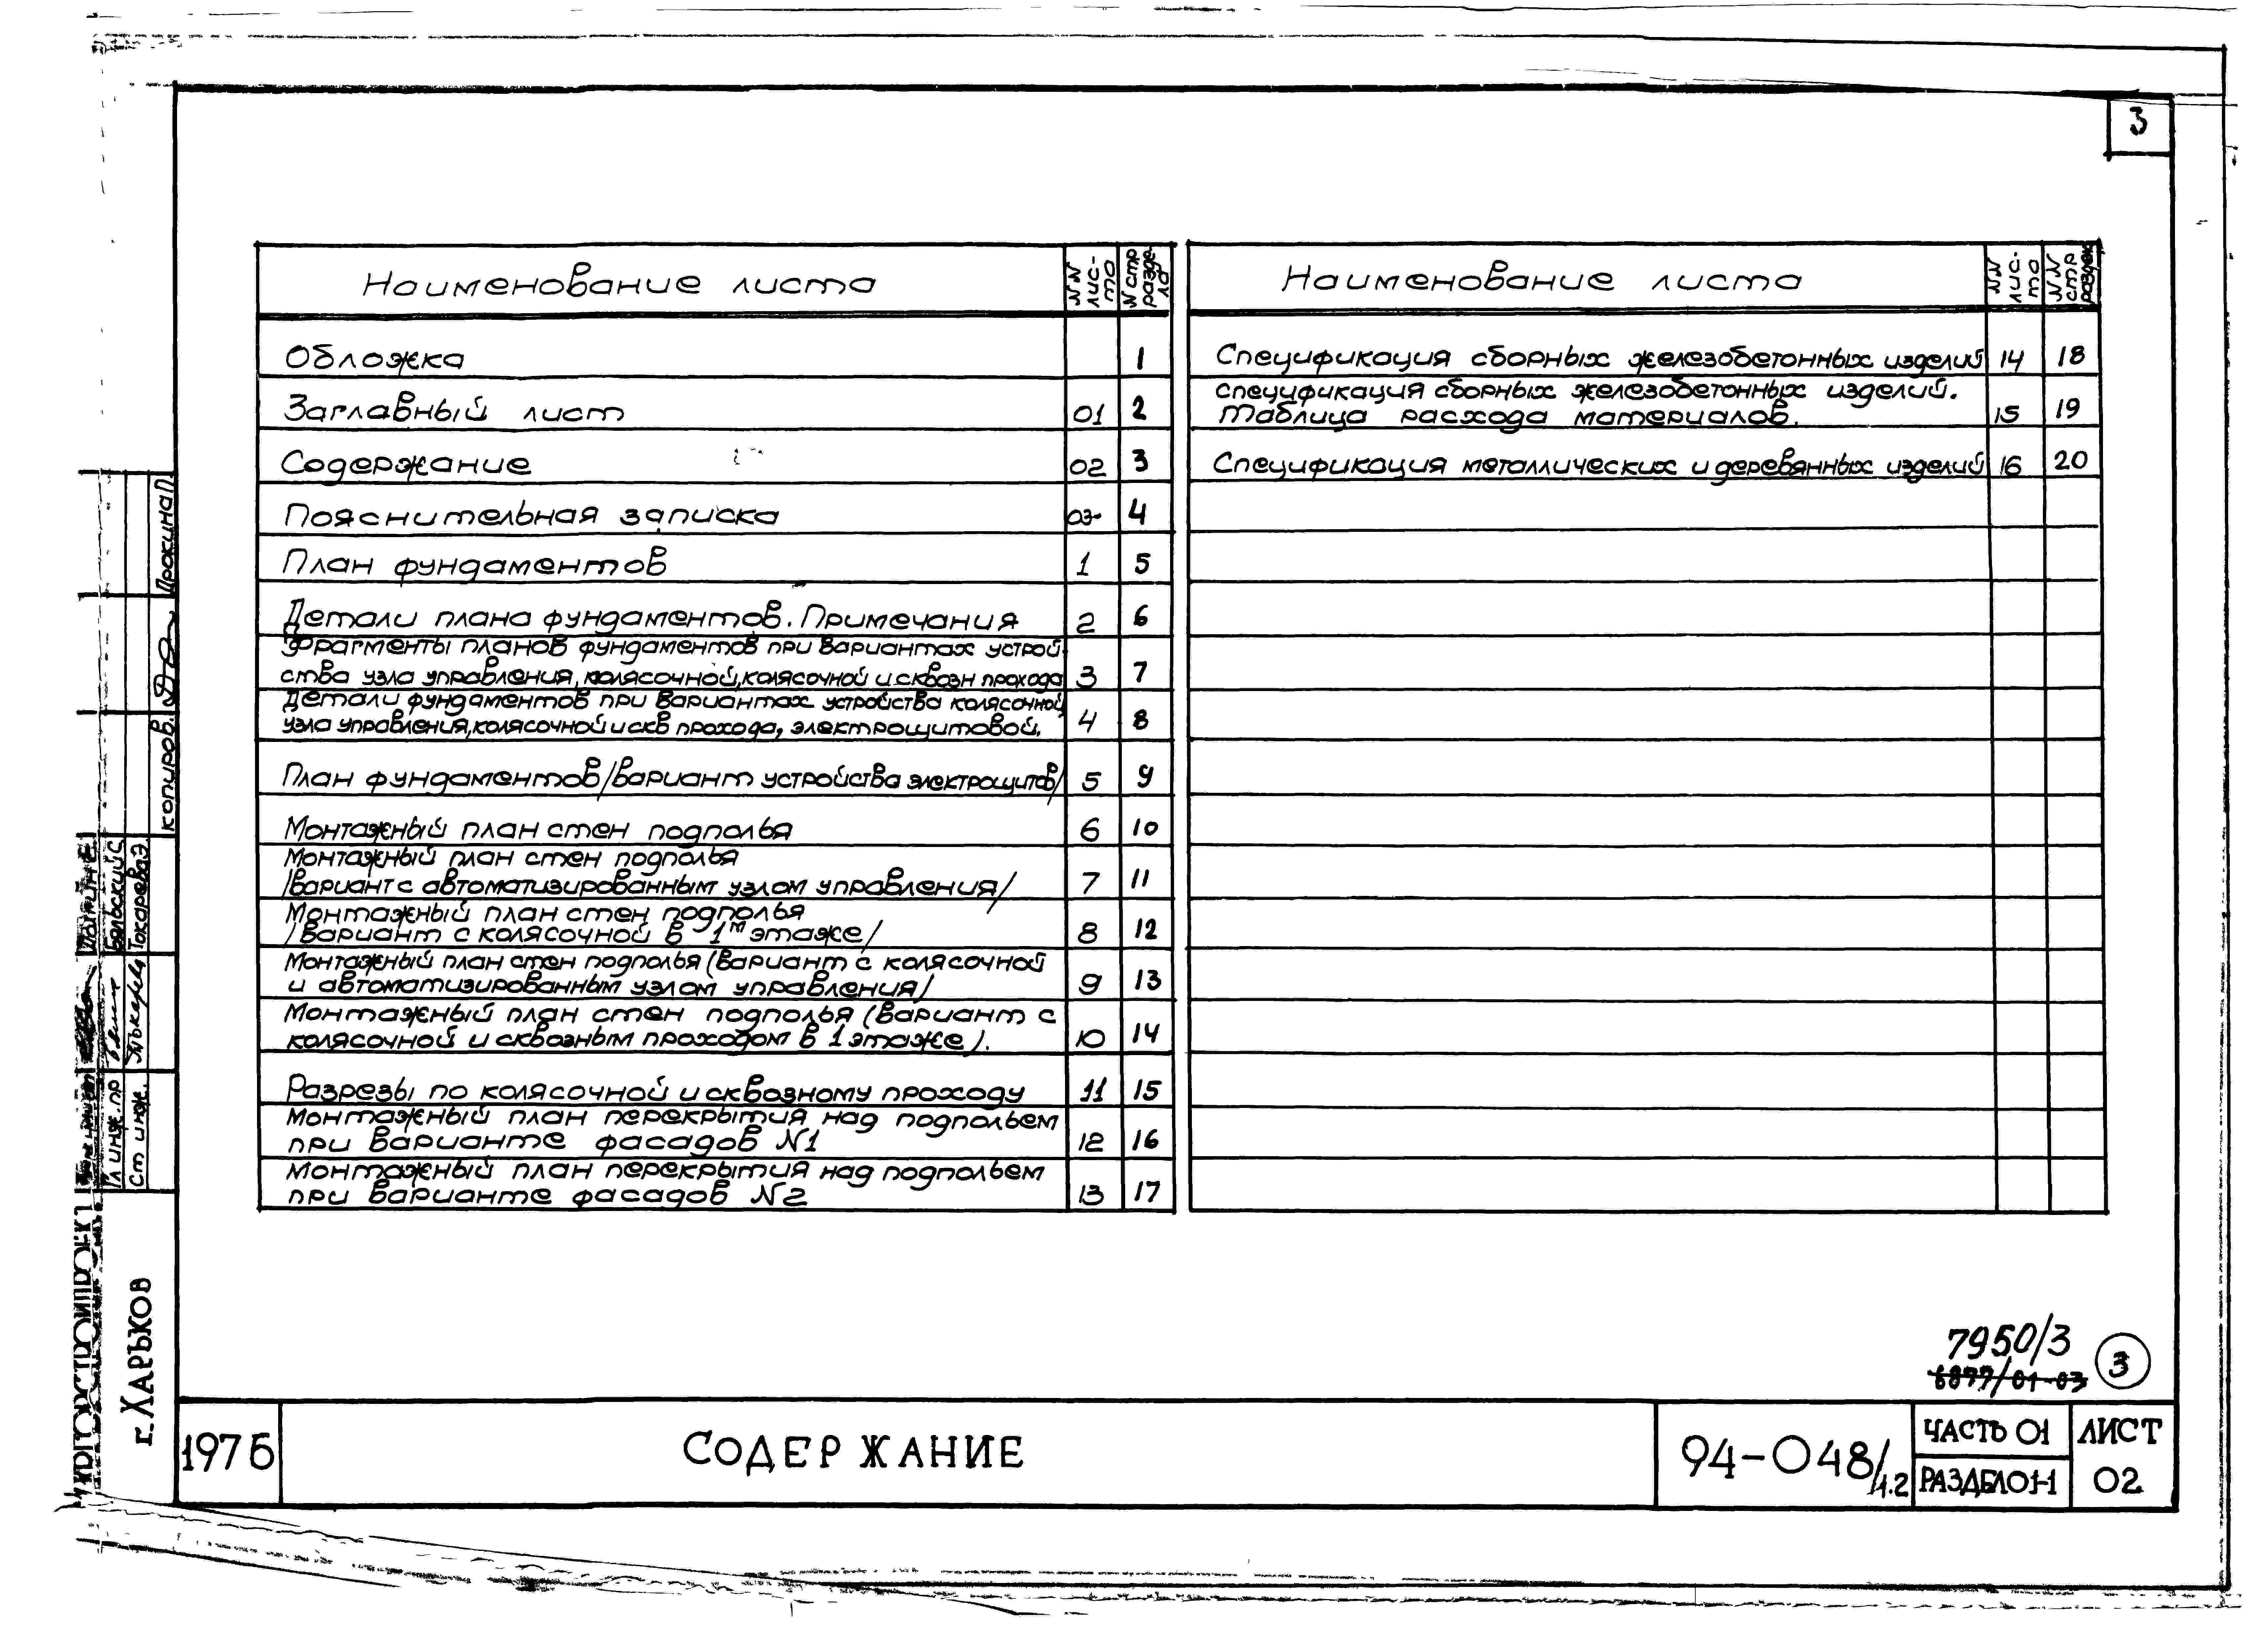 3
Наименование листа
NN лис-та
N стр разде-ла
Обложка 1
Заглавный лист 01 2
Содержание 02 3
Пояснительная записка 03- 4
План фундаментов 1 5
Детали плана фундаментов. Примечания 2 6
Фрагменты планов фундаментов при вариантах устрой-
ства узла управления, колясочной, колясочной и сквозн прохода 3 7
Детали фундаментов при вариантах устройства колясочной,
узла управления, колясочной и скв прохода, электрощитовой. 4 8
План фундаментов /вариант устройства электрощитов/ 5 9
Монтажный план стен подполья 6 10
Монтажный план стен подполья
/вариант с автоматизированным узлом управления/ 7 11
Монтажный план стен подполья
/вариант с колясочной в 1м этаже/ 8 12
Монтажный план стен подполья (вариант с колясочной
и автоматизированным узлом управления/ 9 13
Монтажный план стен подполья (вариант с
колясочной и сквозным проходом в 1 этаже). 10 14
Разрезы по колясочной и сквозному проходу 11 15
Монтажный план перекрытия над подпольем
при варианте фасадов N1 12 16
Монтажный план перекрытия над подпольем
при варианте фасадов N2 13 17
Наименование листа
NN лис-та
NN стр раздел
Спецификация сборных железобетонных изделий 14 18
Спецификация сборных железобетонных изделий.
Таблица расхода материалов. 15 19
Спецификация металлических и деревянных изделий 16 20
копиров. Прокина П.
Бельский С
Токарева Э
Гл инж. пр
Ст инж.
г. Харьков
7950/3
6877/01-03
3
1976
Содержание
94-048/1.2
Часть 01
Раздел 01-1
Лист
02